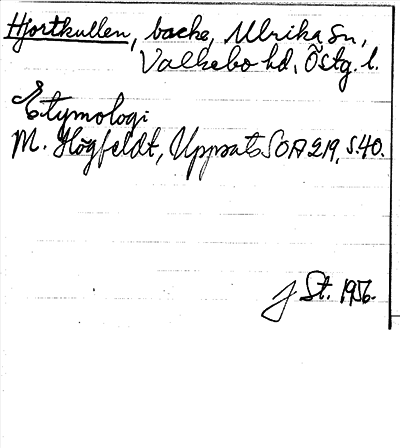 Hjortkullen, backe, Ulrika sn,
Valkebo hd, Östg. l.
Etymologi
M. Högfeldt, Uppsats SOA 219, s. 40.
J St. 1956.